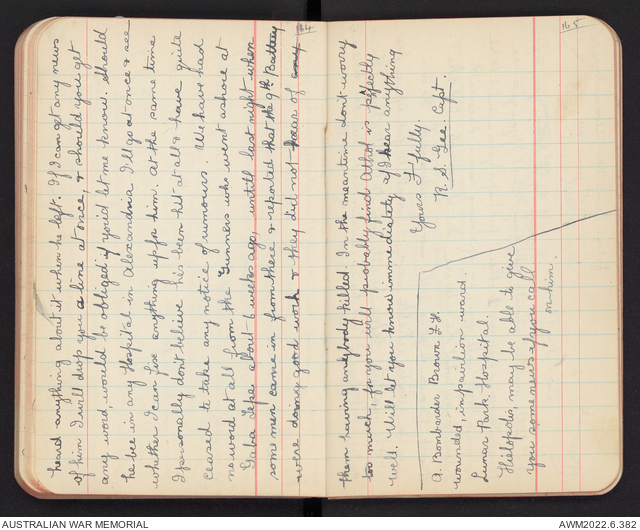 164
heard anything about it when he left. If I can get any news
of him I will drop you a line at once, & should you get
any word, would be obliged if you'd let me know. Should
he be in any Hospital in Alexandria I'll go at once & see
whether I can fix anything up for him. At the same time
I personally don't believe he's been hit at all & have quite
ceased to take any notice of rumours. We have had
no word at all from the Gunners who went ashore at
Gaba Tepe about 6 weeks ago, untill last night when
some men came in from there & reported that the 9th Battery
were doing good work & they did not hear of any
165
them having anybody killed. In the meantime don't worry
too much, for you will probably find Athol is perfectly
well. Will let you know immediately if I hear anything
Yours F'fully.
R. S. Gee Capt.
A. Bombardier Brown F. H.
wounded, in pavilion ward.
Lunar Park Hospital.
Hieliopolis, may be able to give
you some news if you call
on him.
AUSTRALIAN WAR MEMORIAL
AWM2022.6.382